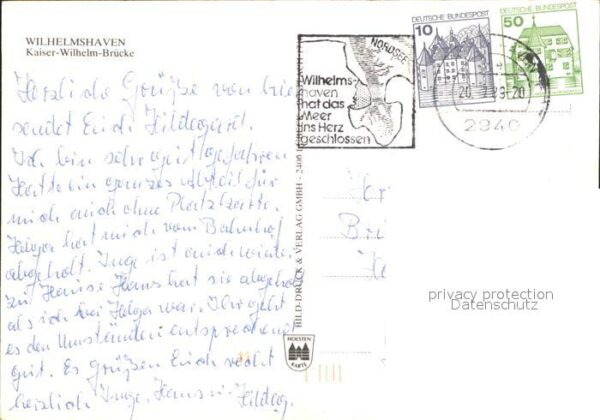 WILHELMSHAVEN
Kaiser-Wilhelm-Brücke
Herzliche Grüße von hier
sendet Euch Hildegard.
Ich bin sehr gut gefahren
Hatte ein ganzes Abteil für
mich auch ohne Platzkarte.
Helga hat mich vom Bahnhof
abgeholt. Inge ist auch wieder
zu Hause Hans hat sie abgeholt
als ich bei Helga war. Ihr geht
es den Umständen entsprechend
gut. Es grüßen Euch recht
herzlich Inge, Hans u. Hildeg.
BILD-DRUCK & VERLAG GMBH - 2400
HOLSTEN
KARTE
NORDSEE
Wilhelms-
haven
hat das
Meer
ins Herz
geschlossen
DEUTSCHE BUNDESPOST
10
DEUTSCHE BUNDESPOST
50
2940
privacy protection
Datenschutz